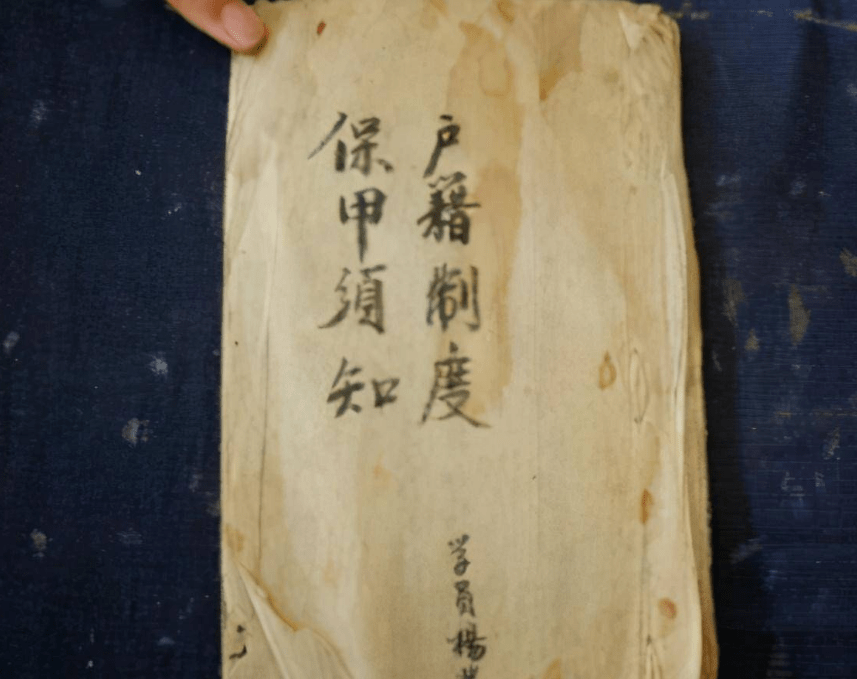 户籍制度
保甲須知
学員楊